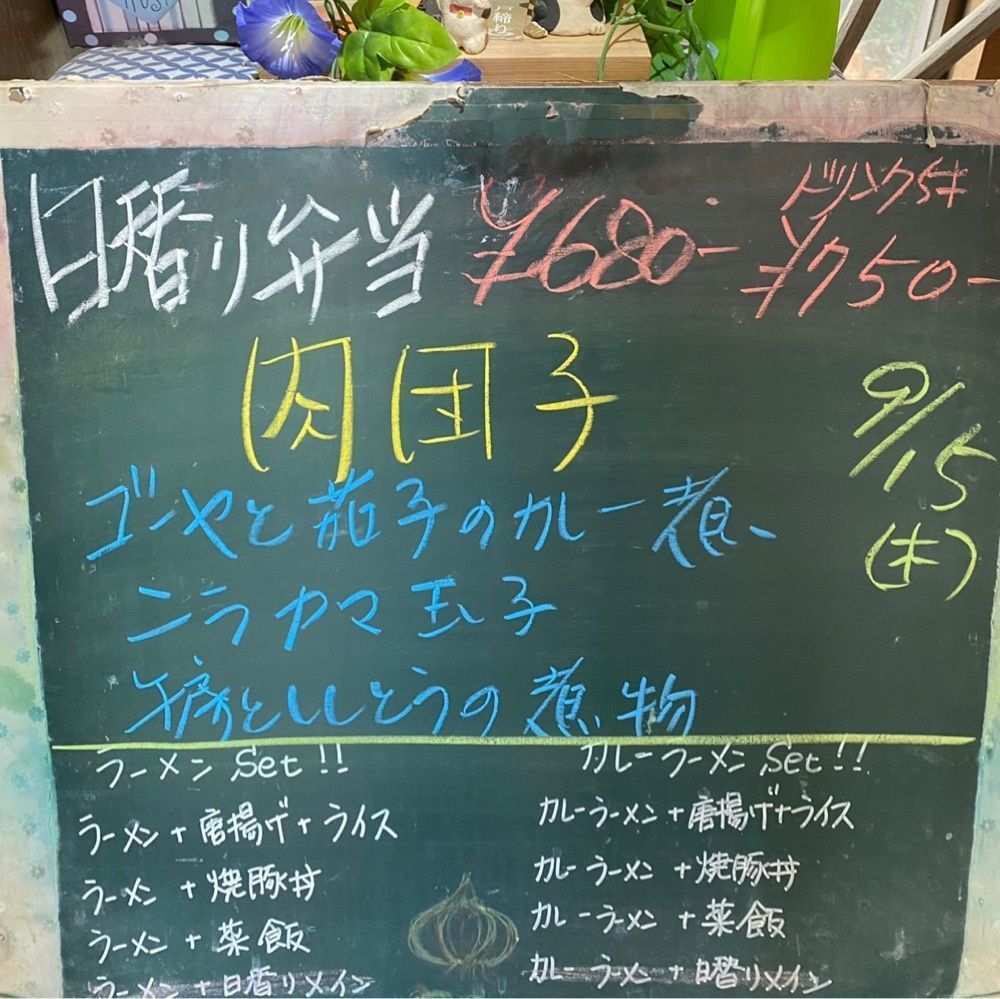 日替り弁当 ¥680-
ドリンク付
¥750-
肉団子
9/15
(木)
ゴーヤと茄子のカレー煮
ニラカマ玉子
午房とししとうの煮物
ラーメン Set!!
ラーメン+唐揚げ+ライス
ラーメン+焼豚丼
ラーメン+薬飯
ラーメン+日替りメイン
カレーラーメン Set!!
カレーラーメン+唐揚げ+ライス
カレーラーメン+焼豚丼
カレーラーメン+薬飯
カレーラーメン+日替りメイン